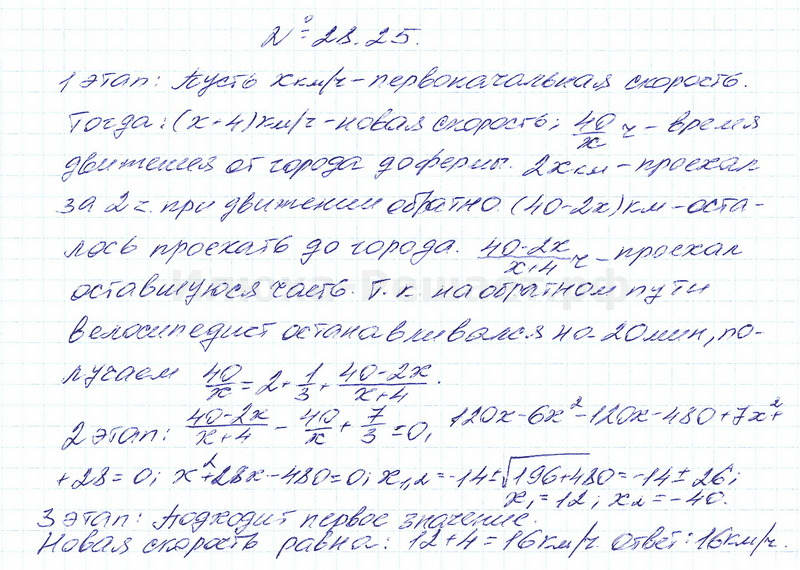 № 28.25.
1 этап: Пусть x км/ч - первоначальная скорость.
Тогда: (x+4) км/ч - новая скорость; 40/x ч - время
движения от города до фермы. 2x км - проехал
за 2 ч. при движении обратно. (40-2x) км - оста-
лось проехать до города. (40-2x)/(x+4) ч - проехал
оставшуюся часть. Т.к. на обратном пути
велосипедист останавливался на 20 мин, по-
лучаем 40/x = 2 + 1/3 + (40-2x)/(x+4).
2 этап: (40-2x)/(x+4) - 40/x + 7/3 = 0, 120x-6x²-120x-480+7x²+
+28=0; x²+28x-480=0; x₁,₂=-14±√(196+480)=-14±26;
x₁=12; x₂=-40.
3 этап: Подходит первое значение.
Новая скорость равна: 12+4=16 км/ч. Ответ: 16 км/ч.